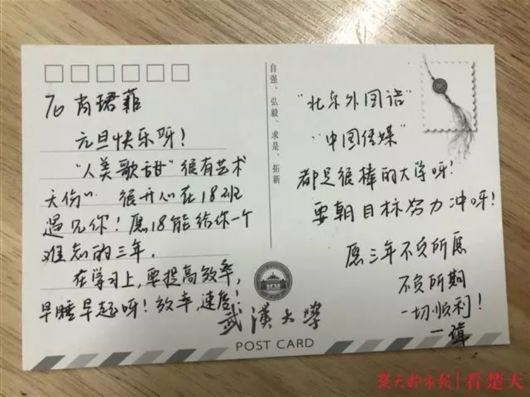 To 肖珺菲
元旦快乐呀!
"人美歌甜"很有艺术
天份 很开心在18班
遇见你!愿18能给你一个
难忘的三年.
在学习上,要提高效率,
早睡早起呀!效率,速度
武漢大學
POST CARD
自强、弘毅、求是、拓新
"北京外国语"
"中国传媒"
都是很棒的大学呀!
要朝目标努力冲呀!
愿三年不负所愿
不负所期
一切顺利!
楚天都市报|看楚天